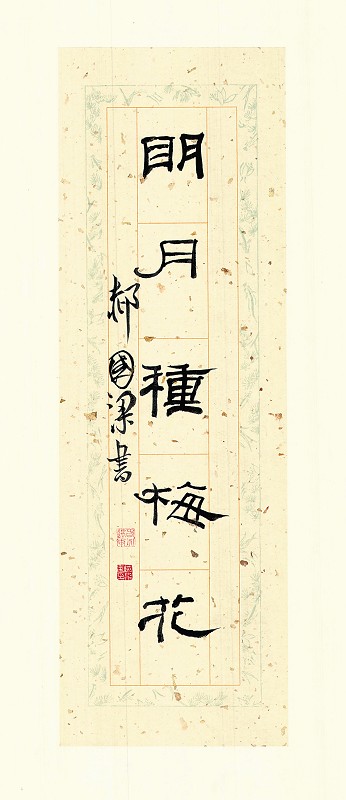 眀月種梅花
郝國梁書